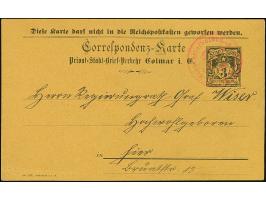 Diese Karte darf nicht in die Reichspostkasten geworfen werden.
Correspondenz-Karte
Privat-Stadt-Brief-Verkehr Colmar i. E.
3
Herrn Regierungsrath Graf Wiser
Hochwohlgeboren
in hier
Brüntstr. 15